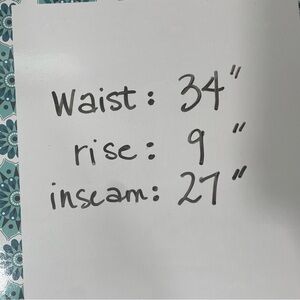 Waist: 34"
rise: 9"
inseam: 27"